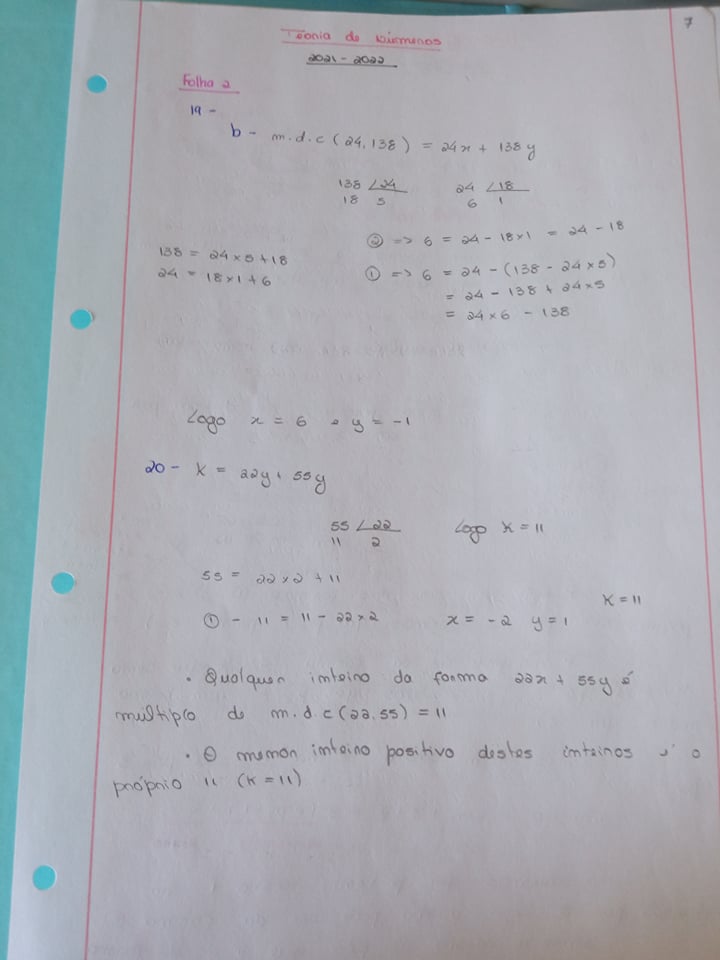 7
Teoria de Números
2021-2022
Folha 2
19 -
b - m.d.c (24, 138) = 24x + 138y
138 ∠24 24 ∠18
18 5 6 1
② => 6 = 24 - 18x1 = 24 - 18
138 = 24 x 5 + 18
24 = 18 x 1 + 6
① => 6 = 24 - (138 - 24 x 5)
= 24 - 138 + 24 x 5
= 24 x 6 - 138
Logo x = 6 e y = -1
20 - K = 22y + 55y
55 ∠22 Logo K = 11
11 2
55 = 22 x 2 + 11
K = 11
① - 11 = 11 - 22 x 2 x = -2 y = 1
• Qualquer inteiro da forma 22x + 55y é
múltiplo de m.d.c (22, 55) = 11
• O menor inteiro positivo destes inteiros é o
próprio 11 (K = 11)